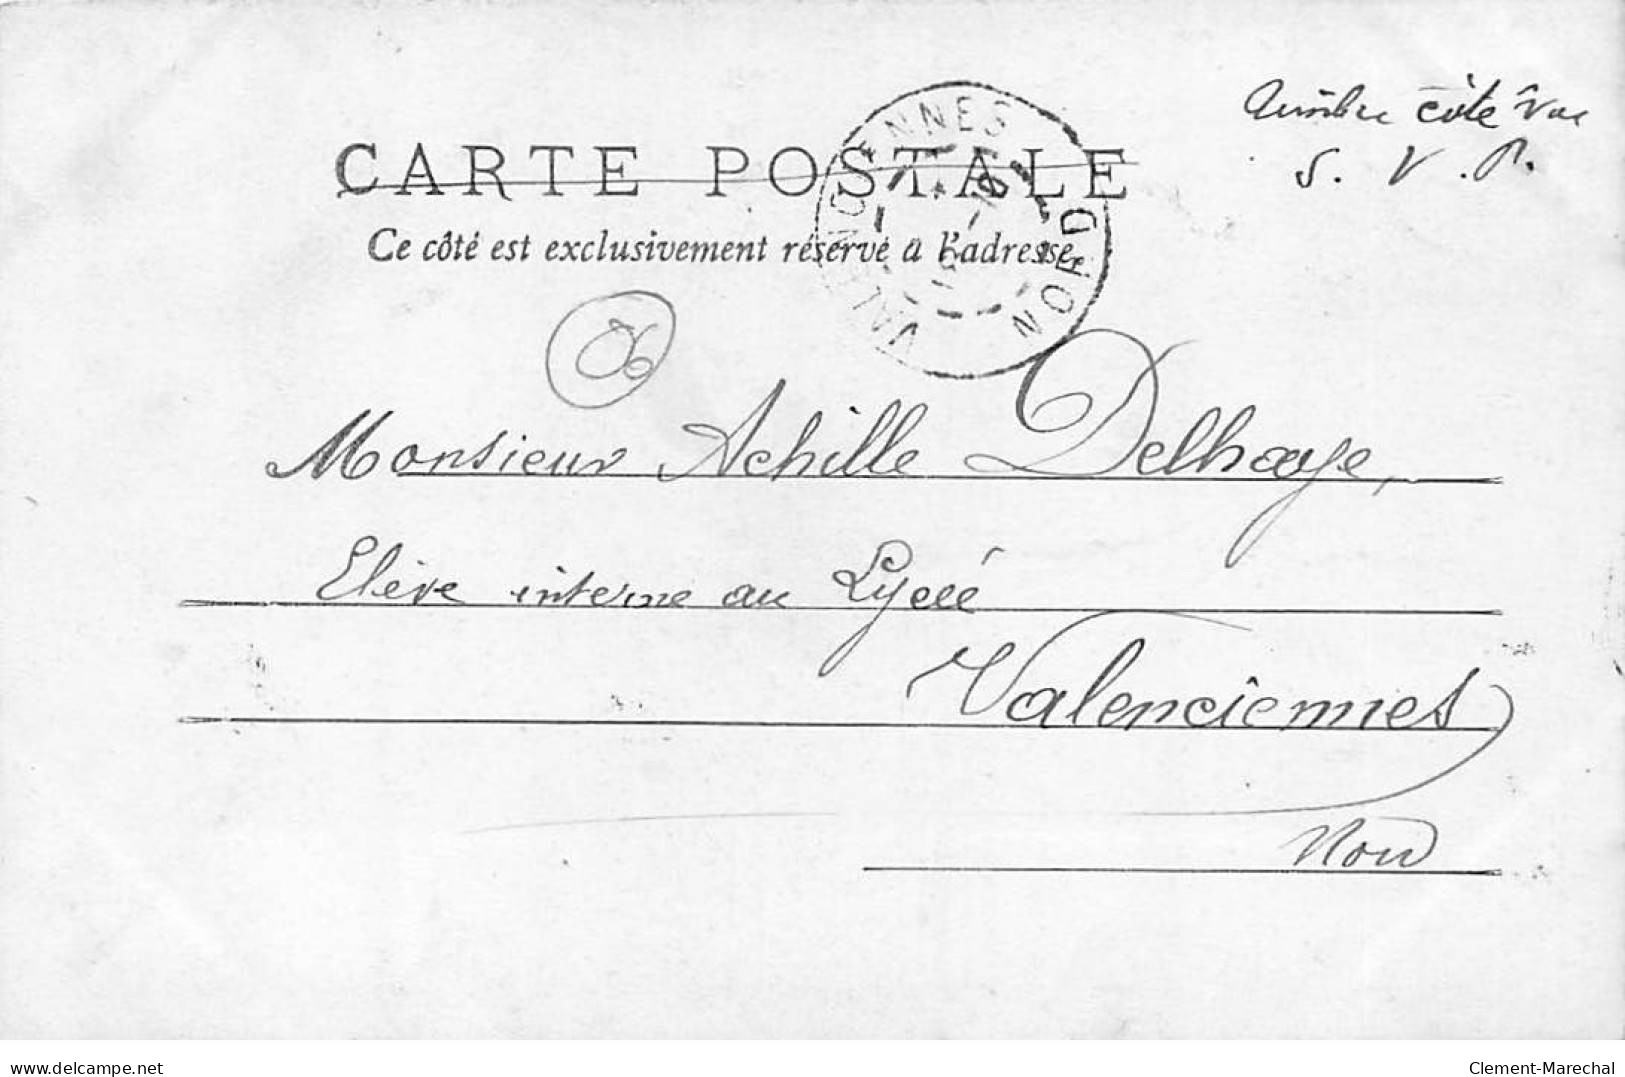 côté vue
S. V. P.
CARTE POSTALE
Ce côté est exclusivement réservé à l'adresse
VALENCIENNES NORD
06
Monsieur Achille Delhaye,
Elève interne au Lyceé
Valenciennes
Nord
www.delcampe.net
Clement-Marechal